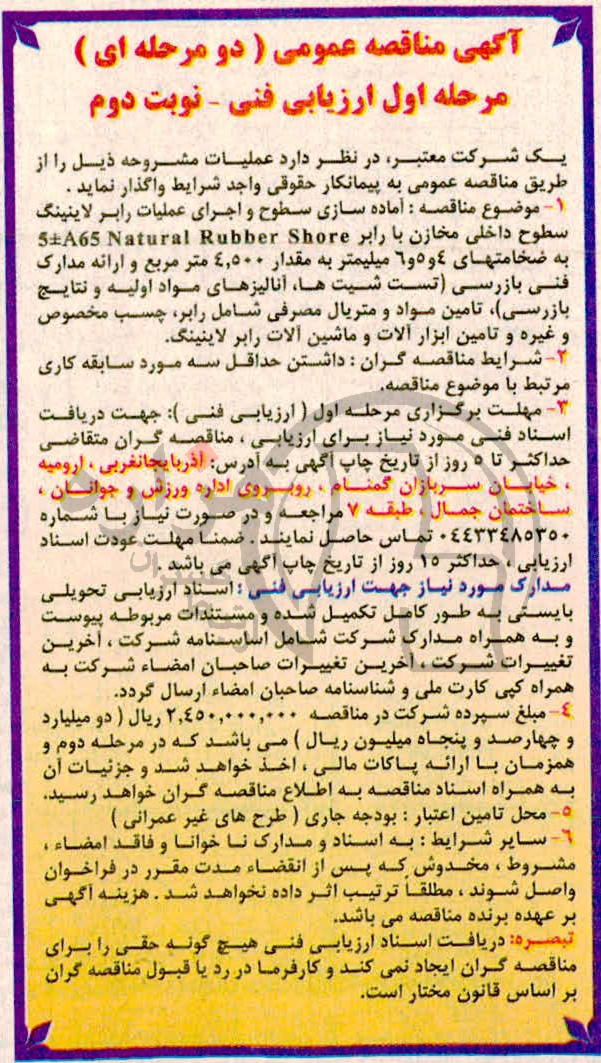 آگهی مناقصه عمومی ( دو مرحله ای )
مرحله اول ارزیابی فنی - نوبت دوم
یک شرکت معتبر، در نظر دارد عملیات مشروحه ذیل را از
طریق مناقصه عمومی به پیمانکار حقوقی واجد شرایط واگذار نماید .
۱- موضوع مناقصه : آماده سازی سطوح و اجرای عملیات رابر لاینینگ
سطوح داخلی مخازن با رابر 5±A65 Natural Rubber Shore
به ضخامتهای ٤و٥و٦ میلیمتر به مقدار ٤,٥٠٠ متر مربع و ارائه مدارک
فنی بازرسی (تست شیت ها، آنالیزهای مواد اولیه و نتایج
بازرسی)، تامین مواد و متریال مصرفی شامل رابر، چسب مخصوص
و غیره و تامین ابزار آلات و ماشین آلات رابر لاینینگ.
۲- شرایط مناقصه گران : داشتن حداقل سه مورد سابقه کاری
مرتبط با موضوع مناقصه.
۳- مهلت برگزاری مرحله اول ( ارزیابی فنی ): جهت دریافت
اسناد فنی مورد نیاز برای ارزیابی ، مناقصه گران متقاضی
حداکثر تا ٥ روز از تاریخ چاپ آگهی به آدرس: آذربایجانغربی ، ارومیه
، خیابان سربازان گمنام ، روبروی اداره ورزش و جوانان ،
ساختمان جمال ، طبقه ۷ مراجعه و در صورت نیاز با شماره
۰٤٤۳۳٤۸٥۳٥۰ تماس حاصل نمایند . ضمنا مهلت عودت اسناد
ارزیابی ، حداکثر ۱٥ روز از تاریخ چاپ آگهی می باشد .
مدارک مورد نیاز جهت ارزیابی فنی : اسناد ارزیابی تحویلی
بایستی به طور کامل تکمیل شده و مستندات مربوطه پیوست
و به همراه مدارک شرکت شامل اساسنامه شرکت ، آخرین
تغییرات شرکت ، آخرین تغییرات صاحبان امضاء شرکت به
همراه کپی کارت ملی و شناسنامه صاحبان امضاء ارسال گردد.
٤- مبلغ سپرده شرکت در مناقصه ۲,٤٥۰,۰۰۰,۰۰۰ ریال ( دو میلیارد
و چهارصد و پنجاه میلیون ریال ) می باشد که در مرحله دوم و
همزمان با ارائه پاکات مالی ، اخذ خواهد شد و جزئیات آن
به همراه اسناد مناقصه به اطلاع مناقصه گران خواهد رسید.
٥- محل تامین اعتبار : بودجه جاری ( طرح های غیر عمرانی )
٦- سایر شرایط : به اسناد و مدارک نا خوانا و فاقد امضاء ،
مشروط ، مخدوش که پس از انقضاء مدت مقرر در فراخوان
واصل شوند ، مطلقاً ترتیب اثر داده نخواهد شد . هزینه آگهی
بر عهده برنده مناقصه می باشد.
تبصره: دریافت اسناد ارزیابی فنی هیچ گونه حقی را برای
مناقصه گران ایجاد نمی کند و کارفرما در رد یا قبول مناقصه گران
بر اساس قانون مختار است.